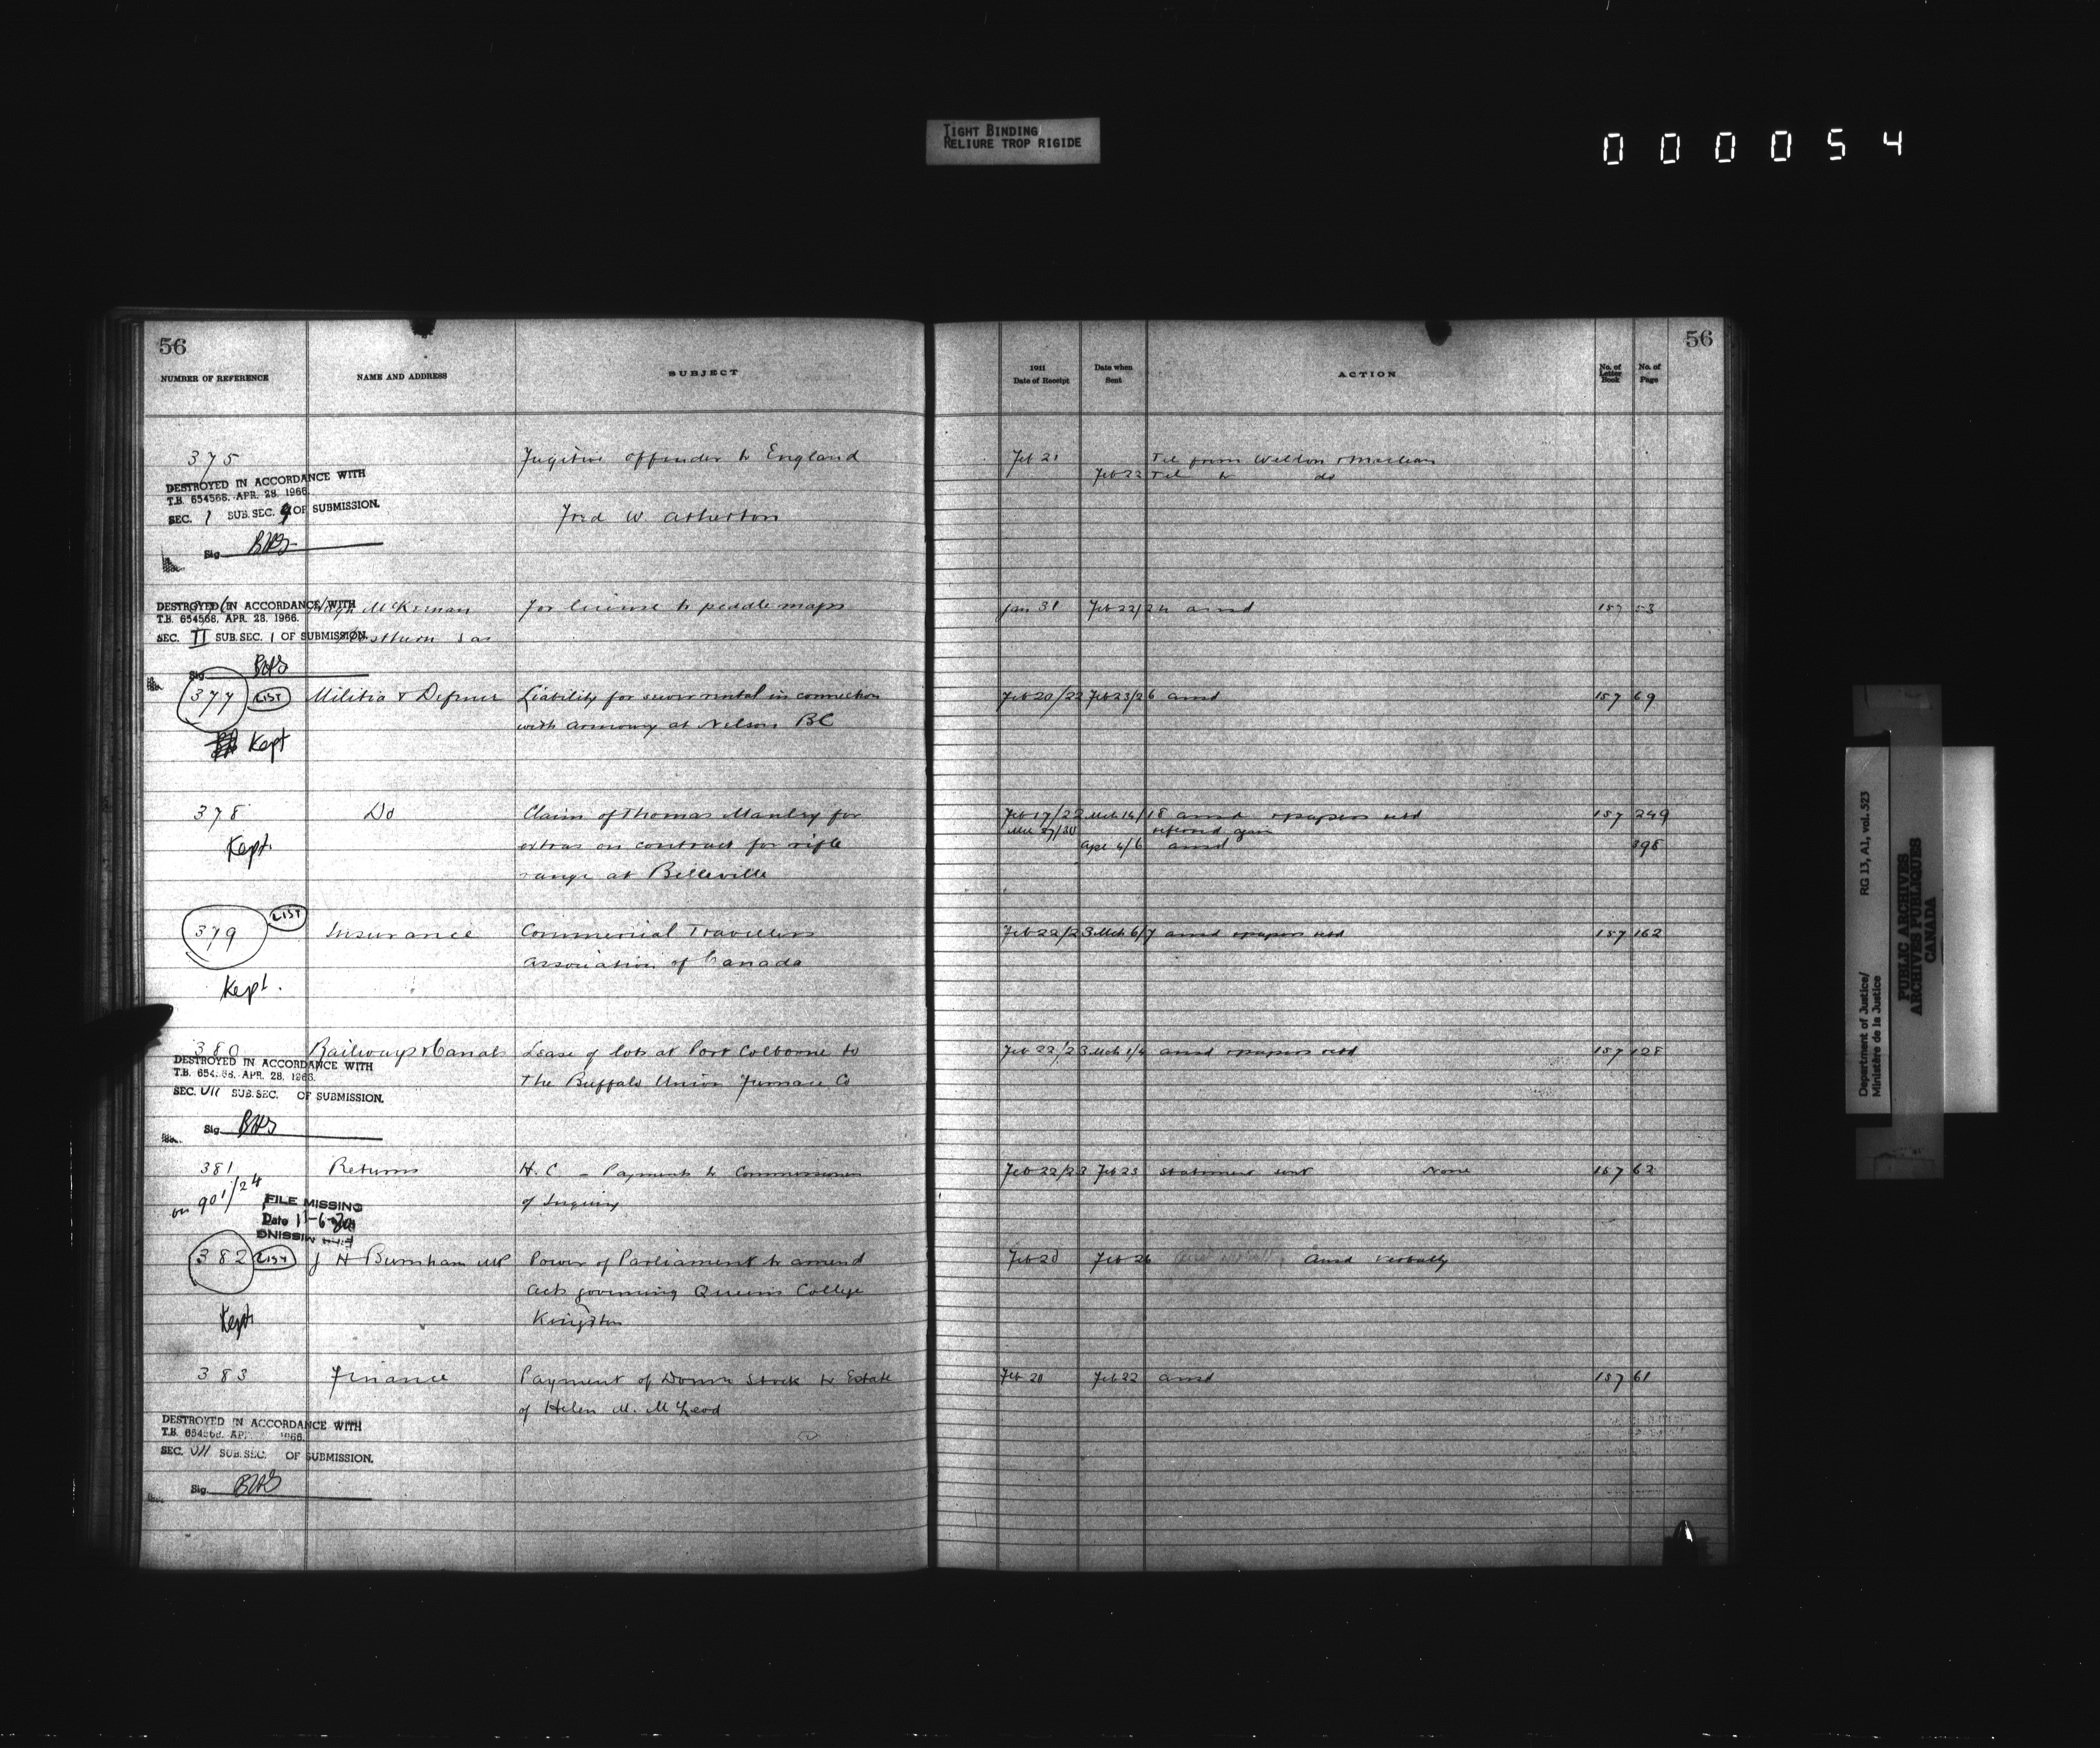 TIGHT BINDING
RELIURE TROP RIGIDE
000054
56
56
NUMBER OF REFERENCE
NAME AND ADDRESS
SUBJECT
1911
Date of Receipt
Date when
Sent
ACTION
No. of
Letter
Book
No. of
Page
375 Fugitive offender to England Feb 21 Tel from Weldon & McLean
Feb 22 Tel to do
DESTROYED IN ACCORDANCE WITH
T.B. 654568. APR. 28, 1966.
SEC. 1 SUB. SEC. 9 OF SUBMISSION.
Fred W. Atherton
Sig.
McKernan For license to peddle maps Jan 31 Feb 22/24 ansd 157 53
DESTROYED IN ACCORDANCE WITH
T.B. 654568. APR. 28, 1966.
SEC. II SUB. SEC. 1 OF SUBMISSION.
Sas
Sig.
377 LIST Militia & Defence Liability for sewer rental in connection Feb 20/22 Feb 23/26 ansd 157 69
with armoury at Nelson BC
Kept
378 Do Claim of Thomas Manley for Feb 17/22 Mch 14/18 ansd & papers retd 157 249
referred again
Kept. extras on contract for rifle Apl 4/6 ansd 398
range at Belleville
379 LIST Insurance Commercial Travellers Feb 22/23 Mch 6/7 ansd & papers retd 157 162
Association of Canada
Kept.
380 Railways & Canals Lease of lots at Port Colborne to Feb 22/23 Mch 1/4 ansd & papers retd 157 128
The Buffalo Union Furnace Co
DESTROYED IN ACCORDANCE WITH
T.B. 654568. APR. 28, 1966.
SEC. VII SUB. SEC. OF SUBMISSION.
Sig.
381 Returns H.C. - Payments to Commissioners Feb 22/23 Feb 23 statement sent None 157 62
on 901/24 of Inquiry
FILE MISSING
Date 11-6-
FILE MISSING
382 LIST J H Burnham MP Power of Parliament to amend Feb 20 Feb 26 Ansd verbally
acts governing Queens College
Kept Kingston
383 Finance Payment of Domn Stock to Estate Feb 20 Feb 22 ansd 157 61
of Helen M. McLeod
DESTROYED IN ACCORDANCE WITH
T.B. 654568. APR. 1966.
SEC. VII SUB. SEC. OF SUBMISSION.
Sig.
Department of Justice/
Ministère de la Justice
RG 13, A1, vol. 523
PUBLIC ARCHIVES
ARCHIVES PUBLIQUES
CANADA